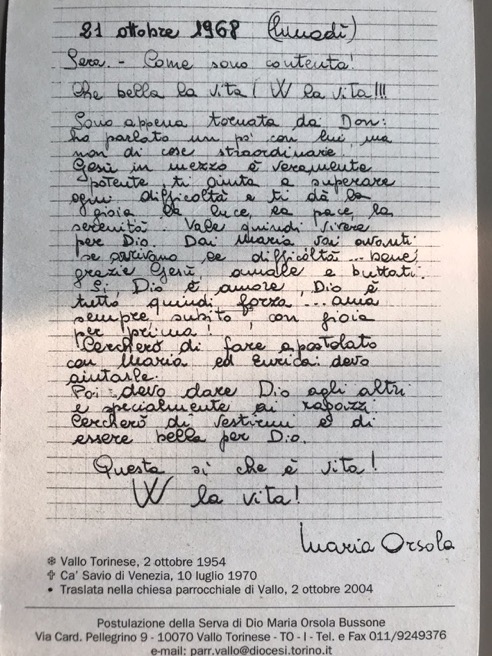 21 ottobre 1968 (lunedì)
Sera. - Come sono contenta!
Che bella la vita! W la vita!!!
Sono appena tornata da Don:
ho parlato un po' con lui, ma
non di cose straordinarie.
Gesù in mezzo è veramente
potente ti aiuta a superare
ogni difficoltà e ti dà la
gioia la luce, la pace, la
serenità. Vale quindi vivere
per Dio. Dai Maria vai avanti
se arrivano le difficoltà... bene,
grazie Gesù, amale e buttati.
Sì, Dio è amore, Dio è
tutto quindi forza... ama
sempre, subito, con gioia
per prima!
Cercherò di fare apostolato
con Maria ed Enrica: devo
aiutarle.
Poi devo dare Dio agli altri
e specialmente ai ragazzi.
Cercherò di vestirmi e di
essere bella per Dio.
Questa sì che è vita!
W la vita!
Maria Orsola
❄ Vallo Torinese, 2 ottobre 1954
✞ Ca' Savio di Venezia, 10 luglio 1970
• Traslata nella chiesa parrocchiale di Vallo, 2 ottobre 2004
Postulazione della Serva di Dio Maria Orsola Bussone
Via Card. Pellegrino 9 - 10070 Vallo Torinese - TO - I - Tel. e Fax 011/9249376
e-mail: parr.vallo@diocesi.torino.it